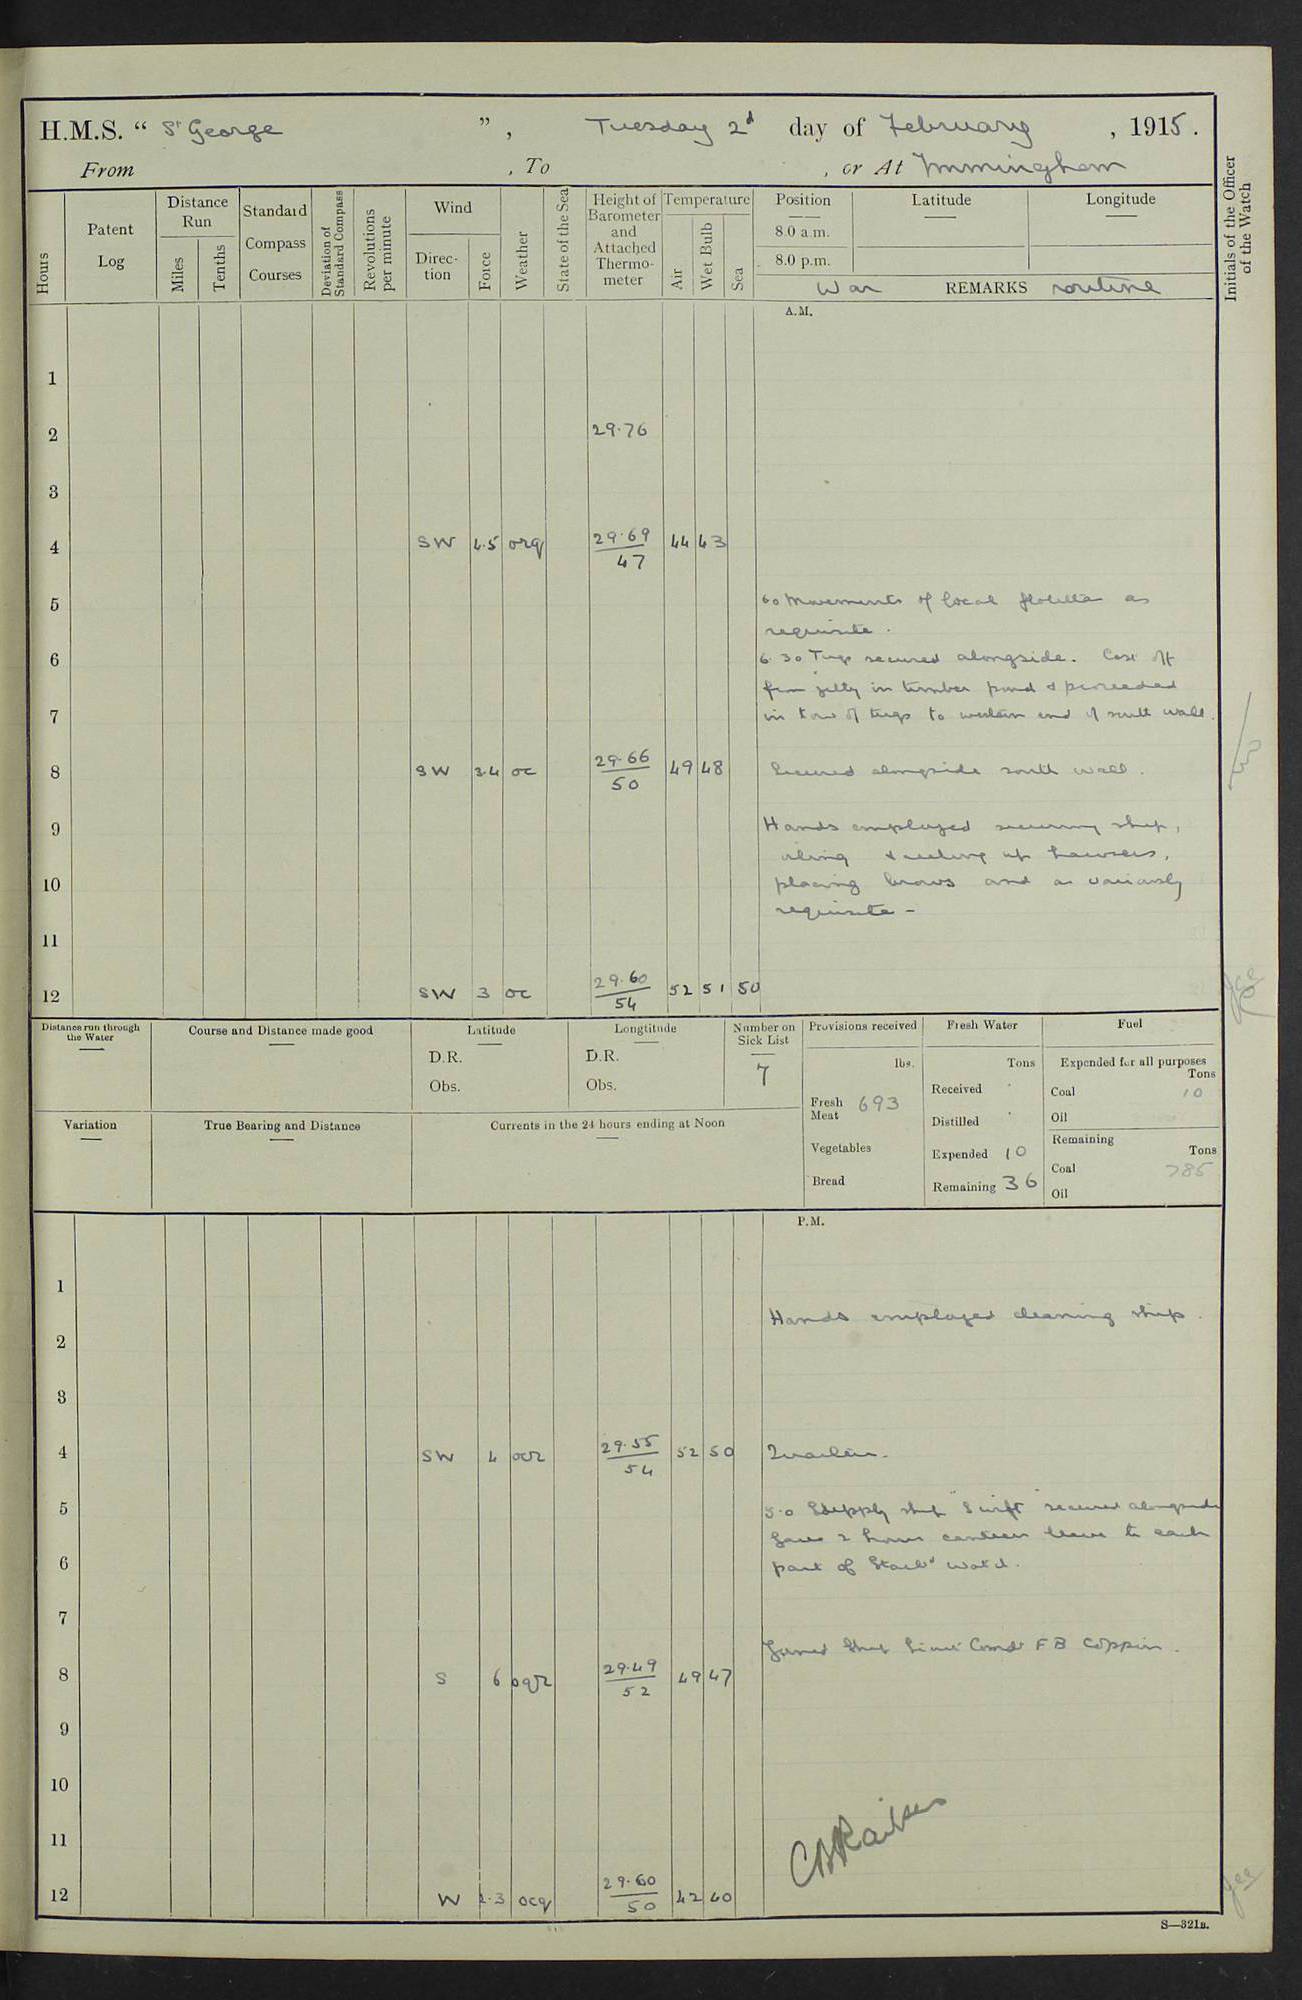 H.M.S. “ St George ” , Tuesday 2d day of February , 1915.
From , To , or At Immingham
Hours
Patent Log
Distance Run
Miles
Tenths
Standard Compass Courses
Deviation of Standard Compass
Revolutions per minute
Wind
Direc- tion
Force
Weather
State of the Sea
Height of Barometer and Attached Thermo- meter
Temperature
Air
Wet Bulb
Sea
Position
Latitude
Longitude
8.0 a.m.
8.0 p.m.
War REMARKS routine
Initials of the Officer of the Watch
A.M.
1
2 29.76
3
4 SW 4.5 orq 29.69 44 43
47
5 6 0 Movements of local flotilla as
requisite.
6 6.30 Tugs secured alongside. Cast off
from jetty in timber pond & proceeded
7 in tow of tugs to western end of south wall.
8 SW 3.4 oc 29.66 49 48 Secured alongside south wall.
50
9 Hands employed securing ship,
oiling & reeling up hawsers,
10 placing brows and as variously
requisite -
11
12 SW 3 oc 29.60 52 51 50
54
Distance run through the Water
Course and Distance made good
Latitude
D.R.
Obs.
Longtitude
D.R.
Obs.
Number on Sick List
7
Provisions received
lbs.
Fresh Meat 693
Vegetables
Bread
Fresh Water
Tons
Received
Distilled
Expended 10
Remaining 36
Fuel
Expended for all purposes
Tons
Coal 10
Oil
Remaining
Tons
Coal 785
Oil
Variation
True Bearing and Distance
Currents in the 24 hours ending at Noon
P.M.
1
Hands employed cleaning ship.
2
3
4 SW 4 ocr 29.55 52 50 Quarters.
54
5 5.0 Supply ship "Swift" secured alongside
Gave 2 hours canteen leave to each
6 part of Starbd watch.
7
Joined Ship Lieut Comdr F B Coppin.
8 S 6 oqr 29.49 49 47
52
9
10
11
12 W 2.3 ocq 29.60 42 40
50
S—321B.